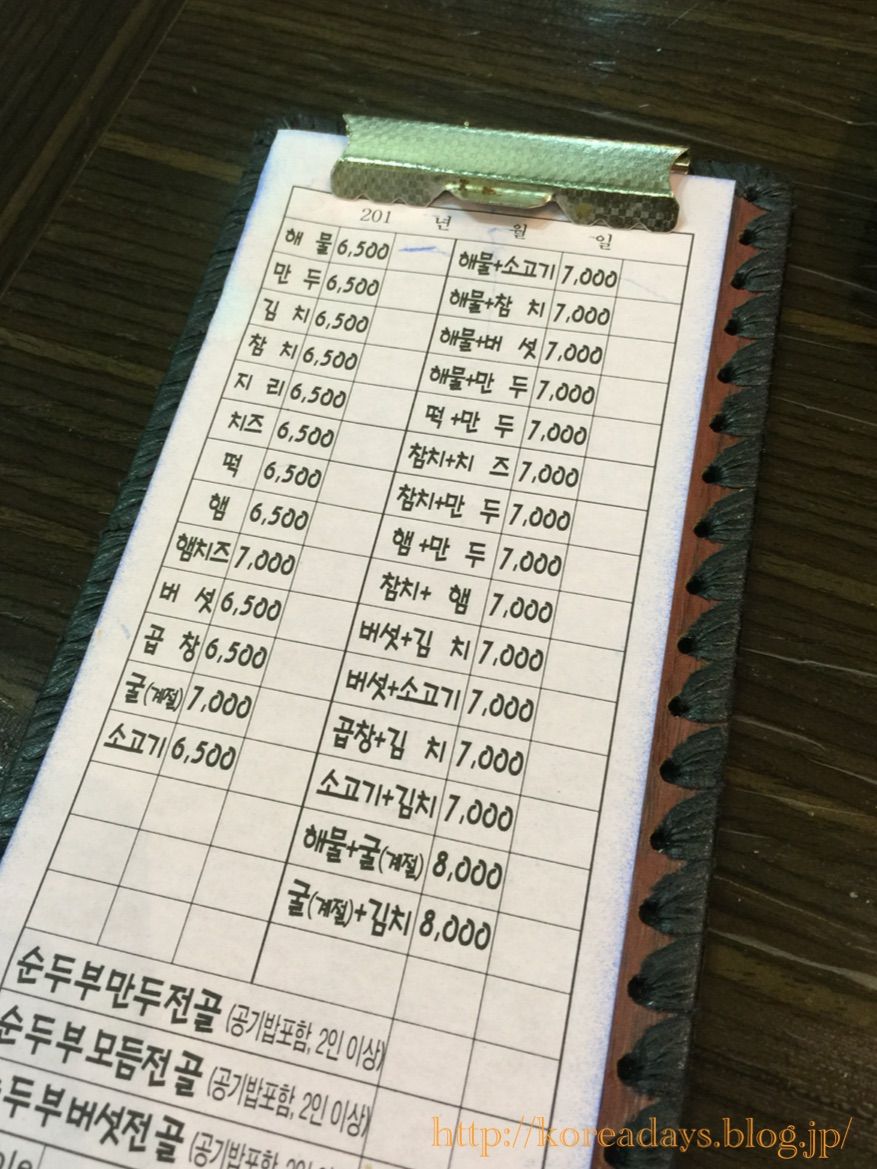 201 년 월 일
해 물 6,500 해물+소고기 7,000
만 두 6,500 해물+참 치 7,000
김 치 6,500 해물+버 섯 7,000
참 치 6,500 해물+만 두 7,000
지 리 6,500 떡 +만 두 7,000
치즈 6,500 참치+치 즈 7,000
떡 6,500 참치+만 두 7,000
햄 6,500 햄 +만 두 7,000
햄치즈 7,000 참치+ 햄 7,000
버 섯 6,500 버섯+김 치 7,000
곱 창 6,500 버섯+소고기 7,000
굴(계절) 7,000 곱창+김 치 7,000
소고기 6,500 소고기+김치 7,000
해물+굴(계절) 8,000
굴(계절)+김치 8,000
순두부만두전골 (공기밥포함, 2인 이상)
순두부모듬전골 (공기밥포함, 2인 이상)
두부버섯전골 (공기밥포함, 2인 이상)
http://koreadays.blog.jp/